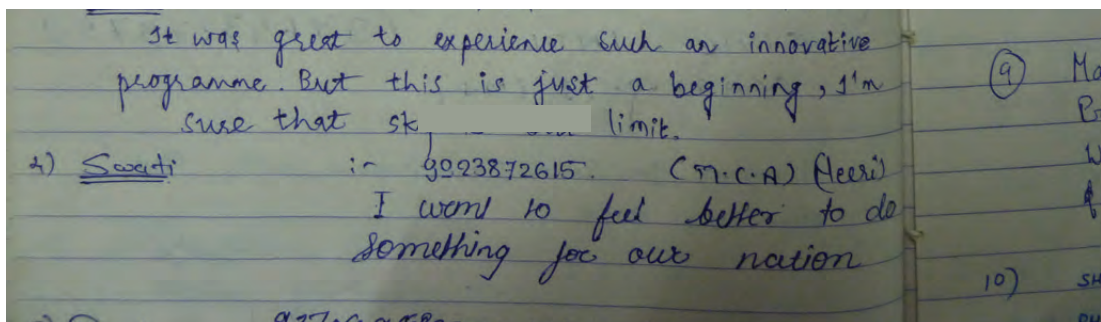 It was great to experience such an innovative
programme. But this is just a beginning, I'm
sure that limit.
2) Swati :- 9023872615. (M.C.A)
I want to feel better to do
something for our nation
9
10)